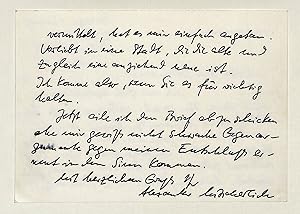 vermittelt, hat es mir einfach angetan.
Verliebt in eine Stadt, die die alte und
zugleich eine anziehend neue ist.
Ich komme also, wenn Sie es für wichtig
halten.
Jetzt eile ich den Brief abzuschicken
ehe mir gewiss nicht schwache Gegenar-
gumente gegen meinen Entschluss er-
neut in den Sinn kommen.
Mit herzlichen Grüß
Alexander Mitscherlich